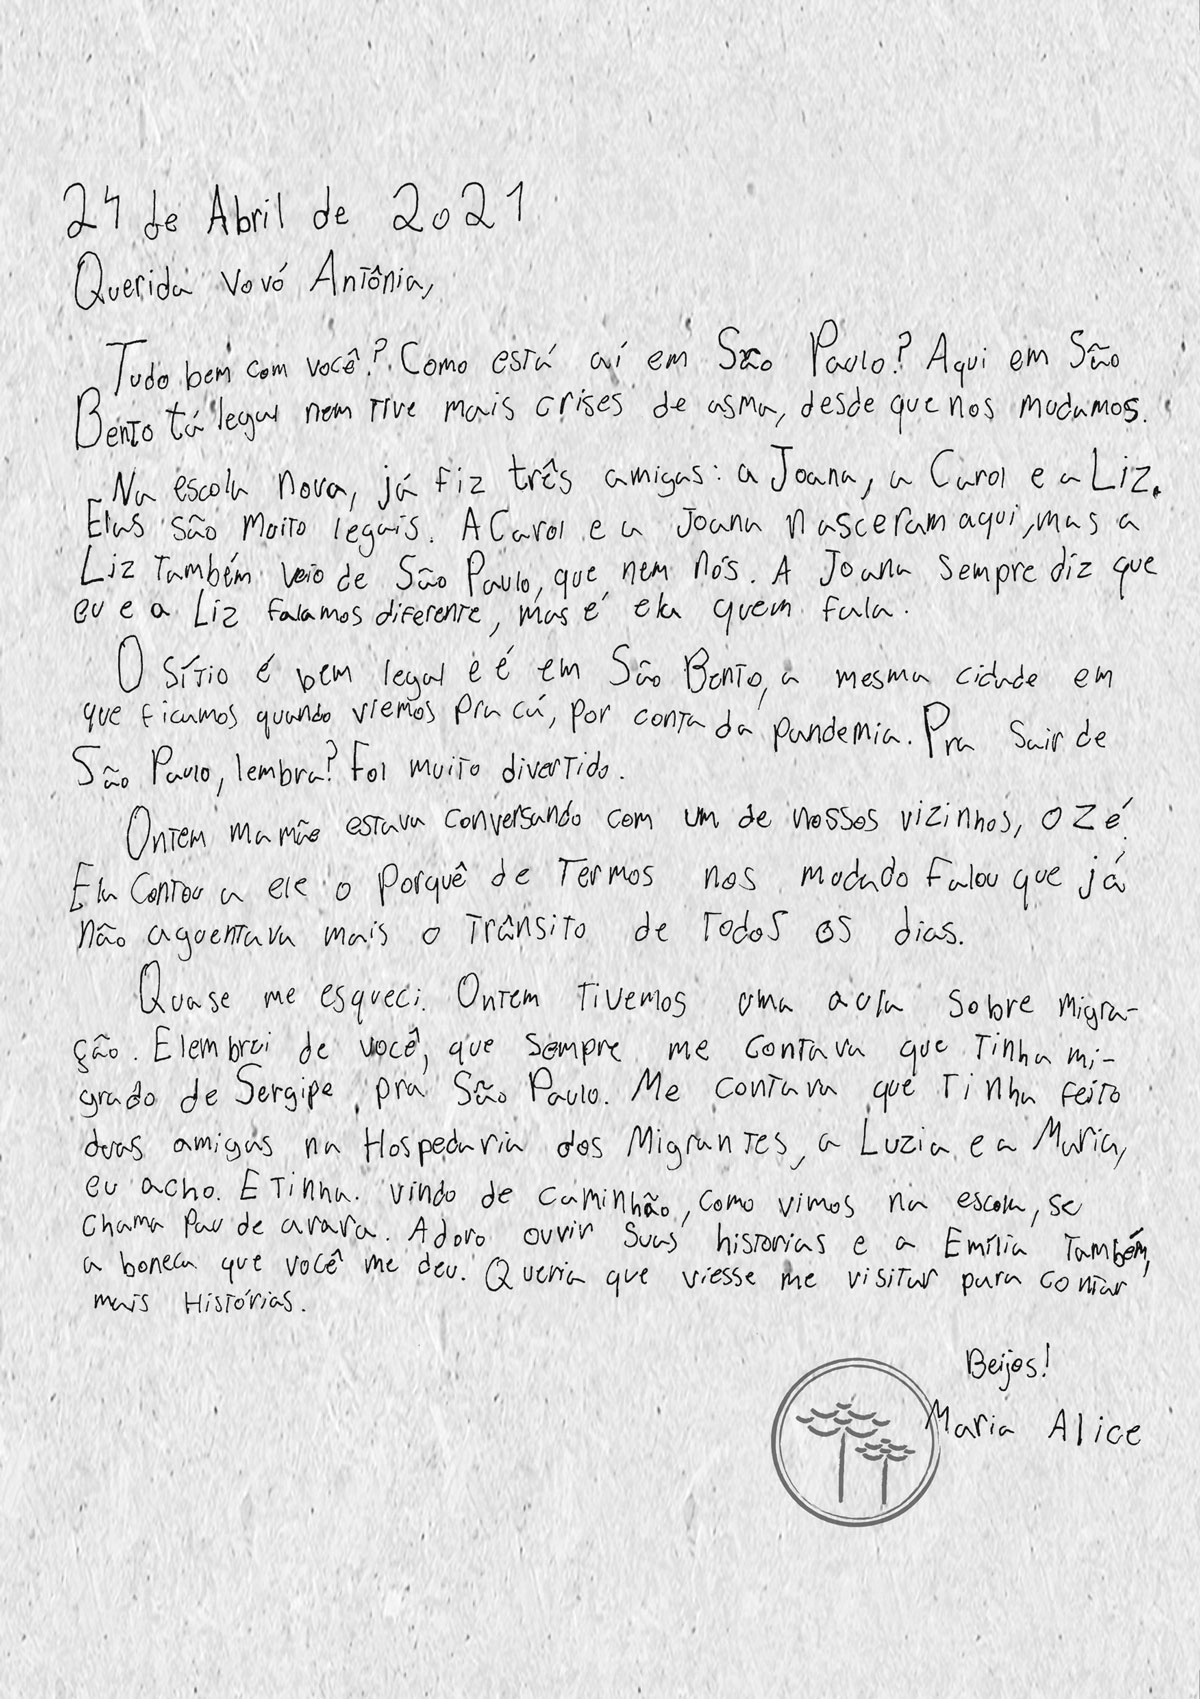 24 de Abril de 2021
Querida Vovó Antônia,
Tudo bem com você? Como está aí em São Paulo? Aqui em São
Bento tá legal nem tive mais crises de asma, desde que nos mudamos.
Na escola nova, já fiz três amigas: a Joana, a Carol e a Liz.
Elas são muito legais. A Carol e a Joana nasceram aqui, mas a
Liz também veio de São Paulo, que nem nós. A Joana sempre diz que
eu e a Liz falamos diferente, mas é ela quem fala.
O sítio é bem legal e é em São Bento, a mesma cidade em
que ficamos quando viemos pra cá, por conta da pandemia. Pra sair de
São Paulo, lembra? Foi muito divertido.
Ontem mamãe estava conversando com um de nossos vizinhos, o Zé.
Ela contou a ele o porquê de termos nos mudado falou que já
não aguentava mais o trânsito de todos os dias.
Quase me esqueci. Ontem tivemos uma aula sobre migra-
ção. E lembrei de você, que sempre me contava que tinha mi-
grado de Sergipe pra São Paulo. Me contava que tinha feito
duas amigas na Hospedaria dos Migrantes, a Luzia e a Maria,
eu acho. E tinha vindo de caminhão, como vimos na escola, se
chama Pau de arara. Adoro ouvir suas historias e a Emília também,
a boneca que você me deu. Queria que viesse me visitar para contar
mais Histórias.
Beijos!
Maria Alice